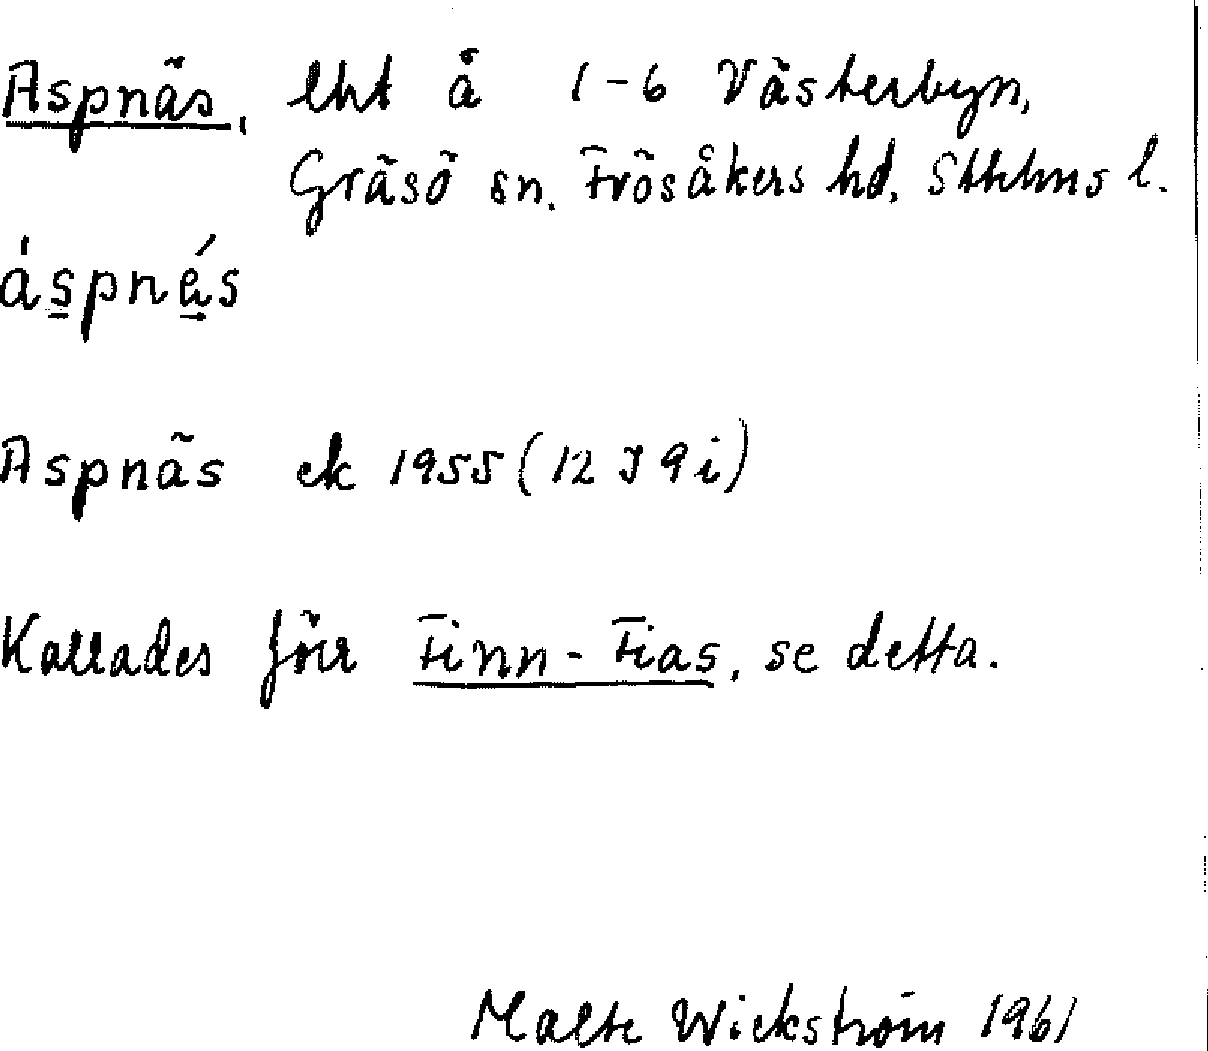 Aspnäs, lht å 1-6 Västerbyn,
Gräsö sn. Frösåkers hd. Sthlms l.
áspnés
Aspnäs ek 1955 (12 J 9 i)
Kallades förr Finn-Fias, se detta.
Malte Wickström 1961